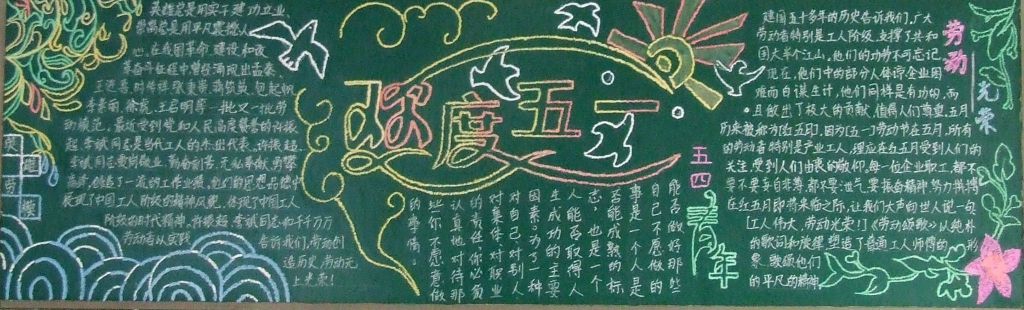 英雄总是用实干建功立业,
崇高总是用平凡震撼人
心。在我国革命、建设和改
革奋斗征程中曾经涌现出孟泰、
王进喜、时传祥、张秉贵、蒋筑英、包起帆、
李素丽、徐虎、王启明等一批又一批劳
动模范。最近受到党和人民高度赞誉的许振
超、李斌同志是当代工人的杰出代表。许振超、
李斌同志爱岗敬业、勤奋
创造了一流的工作业绩。他们的思想品德中
展现了中国工人阶级的精神风貌,体现了中国工人
阶级的时代精神。许振超、李斌同志和千千万万
劳动者以实践告诉我们,劳动创
造历史,劳动光
上未来!
欢度五一
能否做好那些
自己不愿做的
事是一个人是
否能成熟的标
志,也是一个
人能否取得人
生成功的主要
因素。为了一种
对集体、对职业
对自己、对别人
的责任,你必须
认真地对待那
些你不愿意做
的事情。
五四青年
劳动光荣
建国五十多年的历史告诉我们,广大
劳动者特别是工人阶级,支撑了共和
国大半个江山,他们的功劳不可忘记
现在,他们中的部分人体谅企业困
难而自谋生计,他们同样是有功的,而
且做出了极大的贡献,值得人们尊重。五月
历来被称为红五月,因为五一劳动节在五月,所有
的劳动者特别是产业工人,理应在红五月受到人们的
关注,受到人们由衷的敬仰。每一位企业职工,都不
要不要妄自菲薄,都不要泄气,要振奋精神,努力拼搏
在红五月即将来临之际,让我们大声向世人说一句
《工人伟大,劳动光荣!》《劳动颂歌》以纯朴
的歌词和旋律,塑造了普通工人师傅的形
象,歌颂他们
的平凡的精神